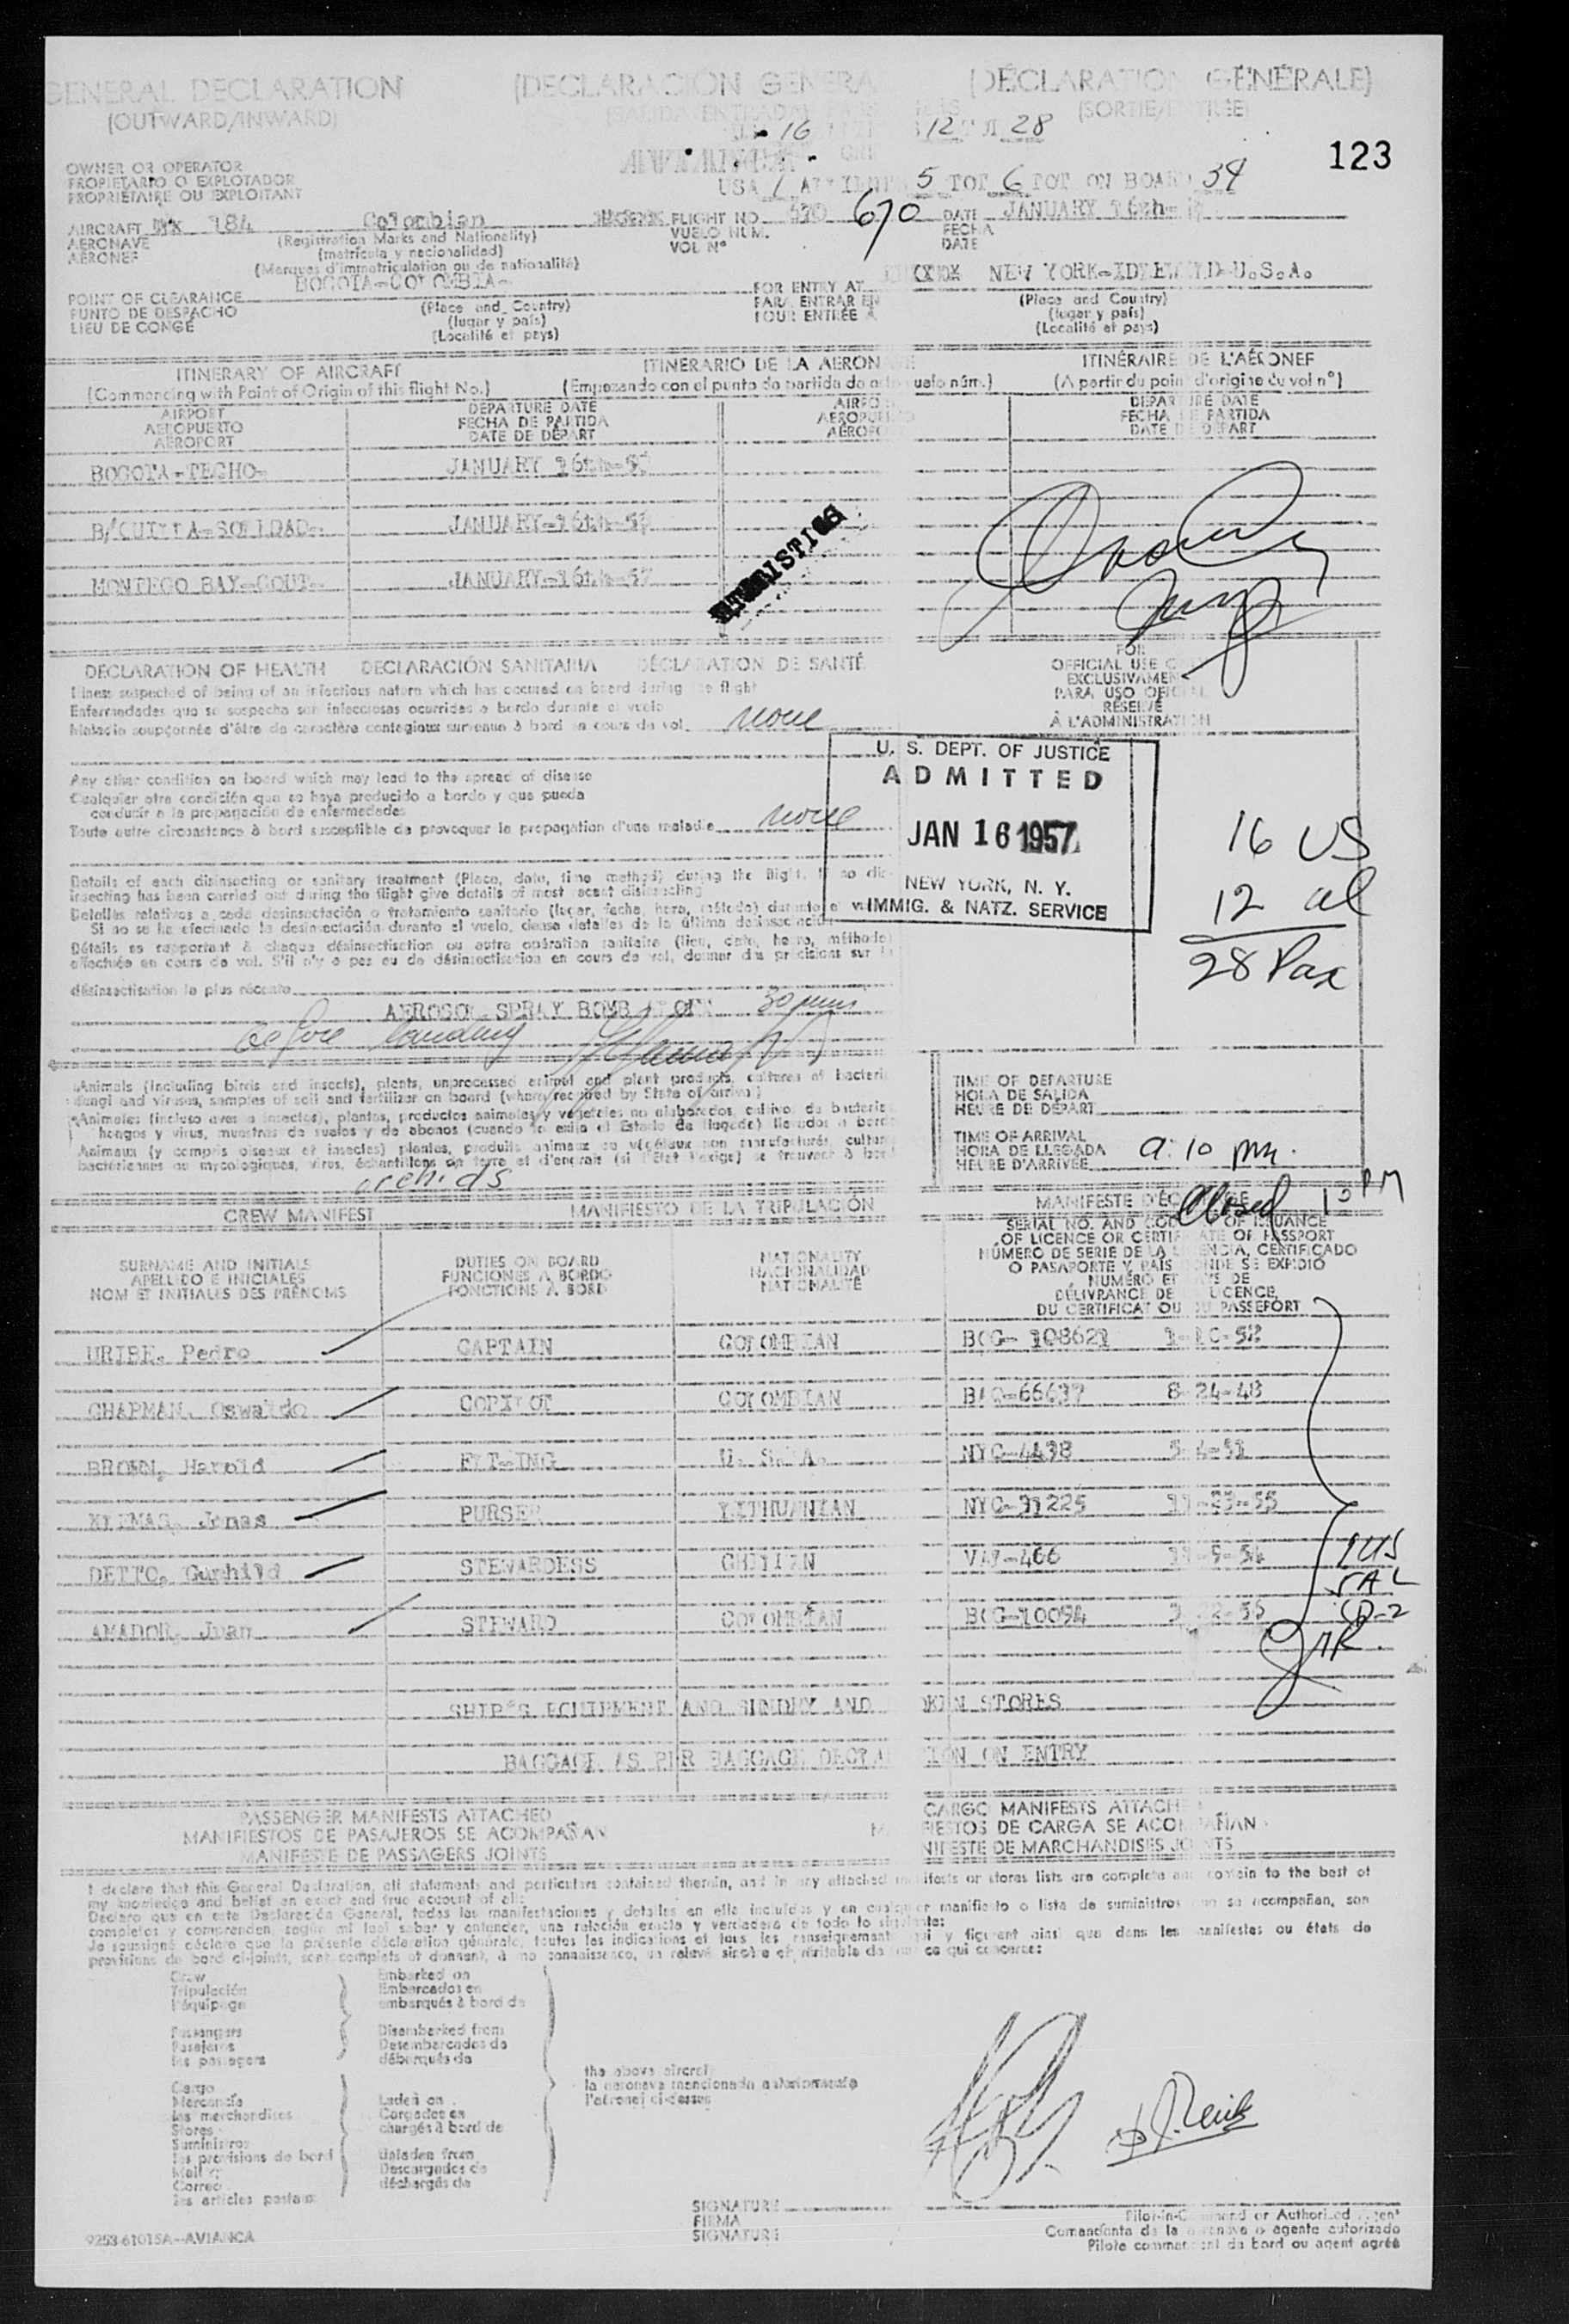 GENERAL DECLARATION (DECLARACIÓN GENERA (DÉCLARATION GÉNÉRALE)
(OUTWARD/INWARD) (SORTIE/ENTRÉE)
16 12 28
123
OWNER OR OPERATOR
PROPIETARIO O EXPLOTADOR
PROPRIÉTAIRE OU EXPLOITANT
USA 1 5 TOT 6 TOT ON BOARD 34
AIRCRAFT 184 Colombian FLIGHT NO. 670 670 DATE JANUARY 16th-
AERONAVE (Registration Marks and Nationality) VUELO NUM. FECHA
AÉRONEF (matrícula y nacionalidad) VOL N° DATE
(Marques d'immatriculation ou de nationalité)
BOGOTA-COLOMBIA- NEW YORK-IDLEWILD-U.S.A.
POINT OF CLEARANCE (Place and Country) FOR ENTRY AT (Place and Country)
PUNTO DE DESPACHO (lugar y país) PARA ENTRAR EN (lugar y país)
LIEU DE CONGÉ (Localité et pays) POUR ENTRÉE A (Localité et pays)
ITINERARY OF AIRCRAFT ITINERARIO DE LA AERON ITINÉRAIRE DE L'AÉRONEF
(Commencing with Point of Origin of this flight No.) (Empezando con el punto de partida de uelo núm.) (A partir du point d'origine du vol n°)
AIRPORT DEPARTURE DATE AIRPO DEPARTURE DATE
AEROPUERTO FECHA DE PARTIDA AEROPUE FECHA DE PARTIDA
AÉROPORT DATE DE DÉPART AÉROPO DATE DE DÉPART
BOGOTA-TECHO- JANUARY 16th-57
B/QUILLA-SOLEDAD- JANUARY-16th-57
MONTEGO BAY-GOUT- JANUARY-16th-57
DECLARATION OF HEALTH DECLARACIÓN SANITARIA DÉCLARATION DE SANTÉ
FOR
OFFICIAL USE O
EXCLUSIVAMEN
PARA USO OFICIAL
RÉSERVÉ
À L'ADMINISTRATION
Illness suspected of being of an infectious nature which has occured on board during the flight
Enfermedades que se sospecha son infecciosas ocurridas a bordo durante el vuelo
Maladie soupçonnée d'être de caractère contagieux survenue à bord en cours de vol. none
Any other condition on board which may lead to the spread of disease
Cualquier otra condición que se haya producido a bordo y que pueda
conducir a la propagación de enfermedades
Toute autre circonstance à bord susceptible de provoquer la propagation d'une maladie none
U. S. DEPT. OF JUSTICE
ADMITTED
JAN 16 1957
NEW YORK, N. Y.
IMMIG. & NATZ. SERVICE
16 US
12 al
28 Pax
Details of each disinsecting or sanitary treatment (Place, date, time method) during the flight. If no dis-
insecting has been carried out during the flight give details of most recent disinsecting
Detalles relativos a cada desinsectación o tratamiento sanitario (lugar, fecha, hora, método) durante el v
Si no se ha efectuado la desinsectación durante el vuelo, dense detalles de la última desinsectación
Détails se rapportant à chaque désinsectisation ou autre opération sanitaire (lieu, date, heure, méthode)
effectuée en cours de vol. S'il n'y a pas eu de désinsectisation en cours de vol, donner des précisions sur la
désinsectisation la plus récente
AEROSOL SPRAY BOMB 30 mins
before landing
Animals (including birds and insects), plants, unprocessed animal and plant products, cultures of bacteri
fungi and viruses, samples of soil and fertilizer on board (where required by State of arrival)
Animales (incluso aves e insectos), plantas, productos animales y vejetales no elaborados, cultivos de bacterias
hongos y virus, muestras de suelos y de abonos (cuando lo exija el Estado de llegada) llevados a bordo
Animaux (y compris oiseaux et insectes) plantes, produits animaux ou végétaux non manufacturés, cultur
bactériennes ou mycologiques, virus, échantillons de terre et d'engrais (si l'État l'exige) se trouvant à bord
orchids
TIME OF DEPARTURE
HORA DE SALIDA
HEURE DE DÉPART
TIME OF ARRIVAL
HORA DE LLEGADA
HEURE D'ARRIVÉE 9:10 pm.
Closed 10 PM
CREW MANIFEST MANIFIESTO DE LA TRIPULACIÓN MANIFESTE D'ÉQUIPAGE
SURNAME AND INITIALS DUTIES ON BOARD NATIONALITY
APELLIDO E INICIALES FUNCIONES A BORDO NACIONALIDAD
NOM ET INITIALES DES PRÉNOMS FONCTIONS A BORD NATIONALITÉ
SERIAL NO. AND COU OF ISSUANCE
OF LICENCE OR CERTIFICATE OR PASSPORT
NÚMERO DE SERIE DE LA LICENCIA, CERTIFICADO
O PASAPORTE Y PAÍS DONDE SE EXPIDIÓ
NUMÉRO ET PAYS DE
DÉLIVRANCE DE LICENCE,
DU CERTIFICAT OU DU PASSEPORT
URIBE, Pedro CAPTAIN COLOMBIAN BOG-108621
CHAPMAN, Oswaldo COPILOT COLOMBIAN BAQ-66637 8-24-48
BROWN, Harold FLT-ING U. S. A. NYC-4438
KLEMAS, Jonas PURSER LITHUANIAN NYC-31225
DETTO, Gunhild STEWARDESS CHILIAN VAP-466
AMADOR, Juan STEWARD COLOMBIAN BOG-10094
1 US
5 AL
CD-2
SHIP'S EQUIPMENT AND SUNDRY AND KEN STORES
BAGGAGE AS PER BAGGAGE DECLA ION ON ENTRY
PASSENGER MANIFESTS ATTACHED CARGO MANIFESTS ATTACH
MANIFIESTOS DE PASAJEROS SE ACOMPAÑAN M FIESTOS DE CARGA SE ACOMPAÑAN
MANIFESTE DE PASSAGERS JOINTS NIFESTE DE MARCHANDISES JOINTS
I declare that this General Declaration, all statements and particulars contained therein, and in any attached manifests or stores lists are complete and contain to the best of
my knowledge and belief an exact and true account of all:
Declaro que en esta Declaración General, todas las manifestaciones y detalles en ella incluidos y en cualquier manifiesto o lista de suministros que se acompañan, son
completos y comprenden, según mi leal saber y entender, una relación exacta y verdadera de todo lo siguiente:
Je soussigné déclare que la présente déclaration générale, toutes les indications et tous les renseignements qui y figurent ainsi que dans les manifestes ou états de
provisions de bord ci-joints, sont complets et donnent, à ma connaissance, un relevé sincère et véritable de tout ce qui concerne:
Crew Embarked on
Tripulación Embarcados en
l'équipage embarqués à bord de
Passengers Disembarked from
Pasajeros Desembarcados de
les passagers débarqués de
the above aircraft
la aeronave mencionada anteriormente
l'aéronef ci-dessus
Cargo
Mercancía Laden on
les merchandises Cargados en
Stores chargés à bord de
Suministros
les provisions de bord Unladen from
Mail Descargados de
Correo déchargés de
les articles postaux
SIGNATURE
FIRMA
SIGNATURE
Pilot-in-Command or Authorized Agent
Comandante de la aeronave o agente autorizado
Pilote commandant de bord ou agent agréé
9253-61015A--AVIANCA